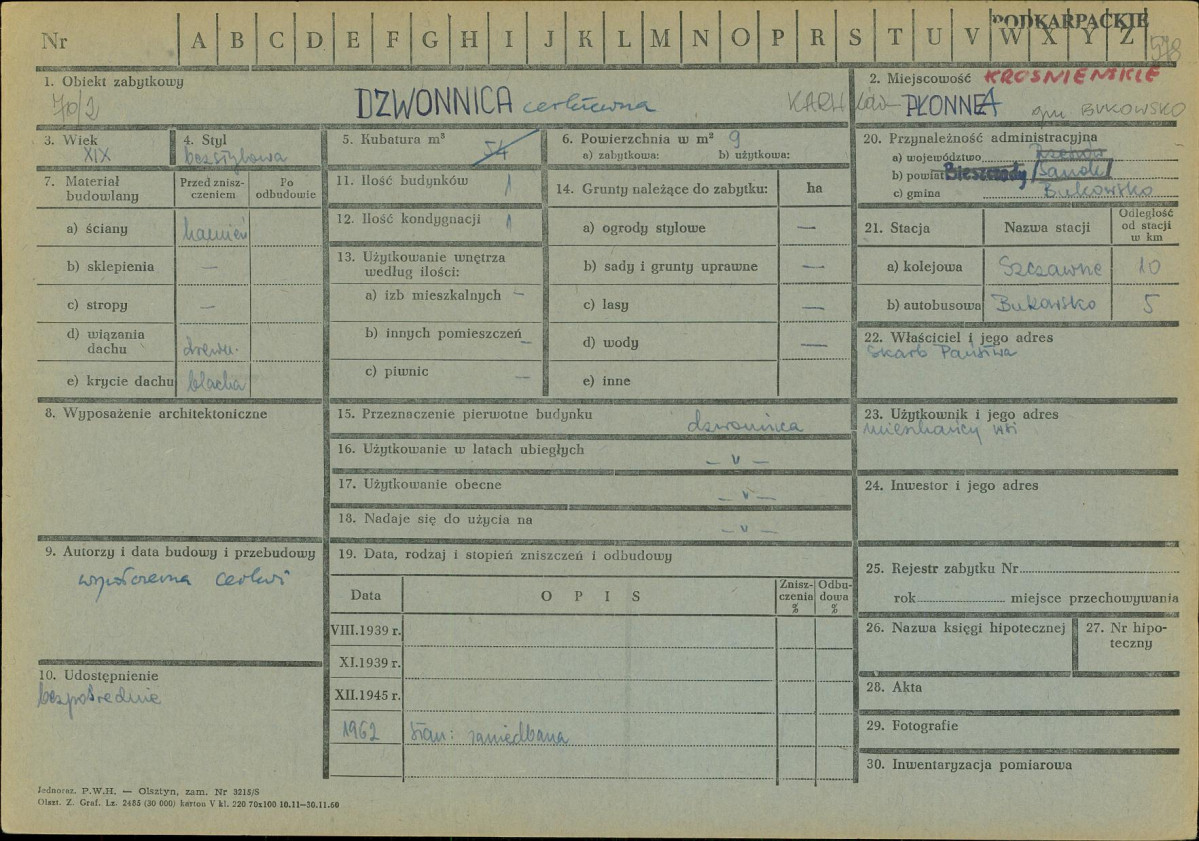 PODKARPACKIE
Nr A B C D E F G H I J K L M N O P R S T U V W X Y Z
578
1. Obiekt zabytkowy
DZWONNICA cerkiewna
2. Miejscowość KROŚNIEŃSKIE
PŁONNA gm BUKOWSKO
3. Wiek
XIX
4. Styl
bezstylowa
5. Kubatura m³ 54
6. Powierzchnia w m² 9
a) zabytkowa: b) użytkowa:
20. Przynależność administracyjna
a) województwo Rzeszów
b) powiat Bieszczady Sanok
c) gmina Bukowsko
7. Materiał budowlany
Przed zniszczeniem
Po odbudowie
a) ściany kamień
b) sklepienia —
c) stropy —
d) wiązania dachu drewn.
e) krycie dachu blacha
11. Ilość budynków 1
12. Ilość kondygnacji 1
13. Użytkowanie wnętrza
według ilości:
a) izb mieszkalnych —
b) innych pomieszczeń —
c) piwnic —
14. Grunty należące do zabytku: ha
a) ogrody stylowe —
b) sady i grunty uprawne —
c) lasy —
d) wody —
e) inne
21. Stacja Nazwa stacji Odległość od stacji w km
a) kolejowa Szczawne 10
b) autobusowa Bukowsko 5
22. Właściciel i jego adres
Skarb Państwa
8. Wyposażenie architektoniczne
15. Przeznaczenie pierwotne budynku dzwonnica
16. Użytkowanie w latach ubiegłych — v —
17. Użytkowanie obecne — v —
18. Nadaje się do użycia na — v —
23. Użytkownik i jego adres
mieszkańcy wsi
24. Inwestor i jego adres
9. Autorzy i data budowy i przebudowy
współczesna cerkwi
19. Data, rodzaj i stopień zniszczeń i odbudowy
Data OPIS Zniszczenia % Odbudowa %
VIII.1939 r.
XI.1939 r.
XII.1945 r.
1962 stan: zaniedbana
25. Rejestr zabytku Nr
rok miejsce przechowywania
26. Nazwa księgi hipotecznej
27. Nr hipoteczny
10. Udostępnienie
bezpośrednie
28. Akta
29. Fotografie
30. Inwentaryzacja pomiarowa
Jednoraz. P.W.H. — Olsztyn, zam. Nr 3215/S
Olszt. Z. Graf. Lz. 2485 (30 000) karton V kl. 220 70x100 10.11—30.11.60